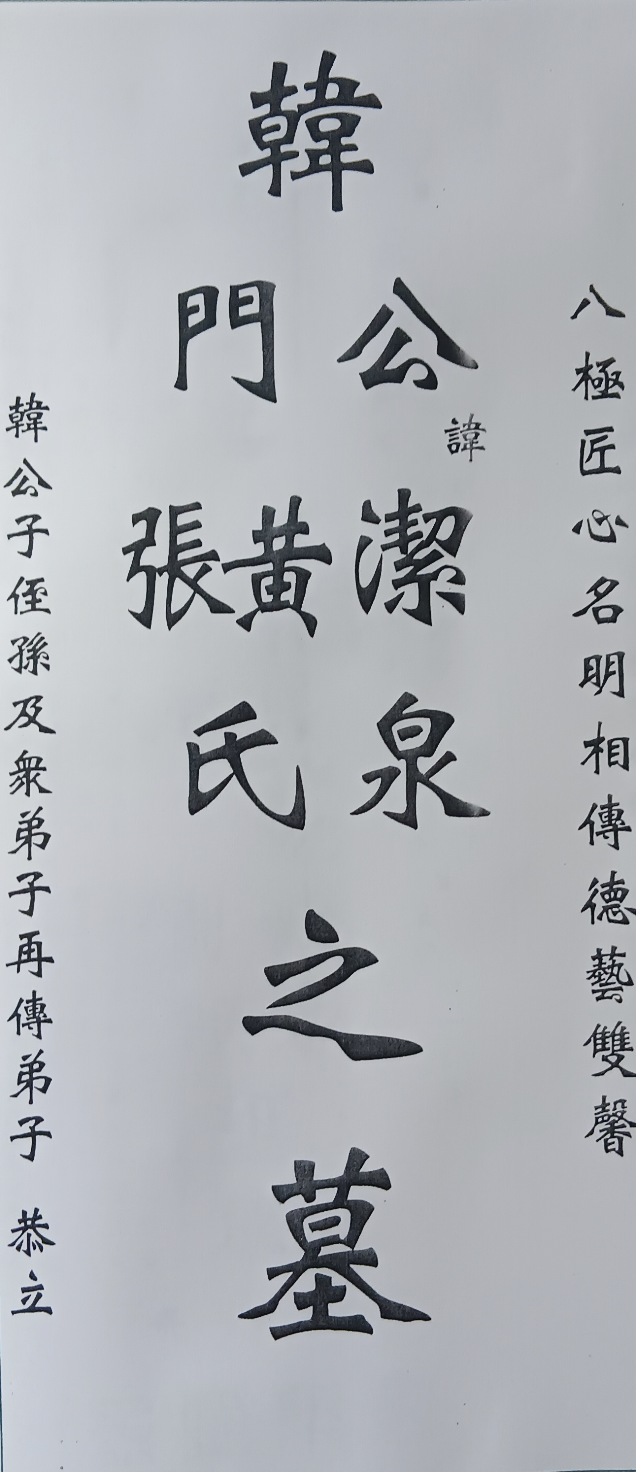 八極匠心名明相傳德藝雙馨
韓
公諱潔泉
門黃張氏
之墓
韓公子侄孫及衆弟子再傳弟子 恭立